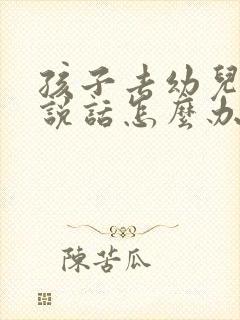 孩子去幼兒
說話怎麼办
陳苦瓜